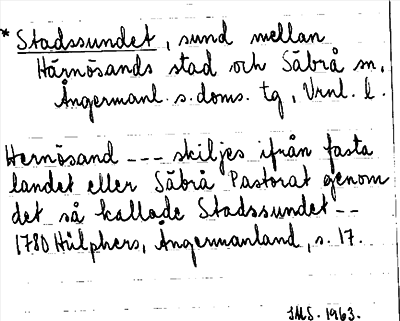 * Stadssundet, sund mellan
Härnösands stad och Säbrå sn.
Ångermanl. s. doms. tg, Vrnl. l.
Hernösand --- skiljes ifrån fasta
landet eller Säbrå Pastorat genom
det så kallade Stadssundet --
1780 Hülphers, Ångermanland, s. 17.
IMS. 1963.